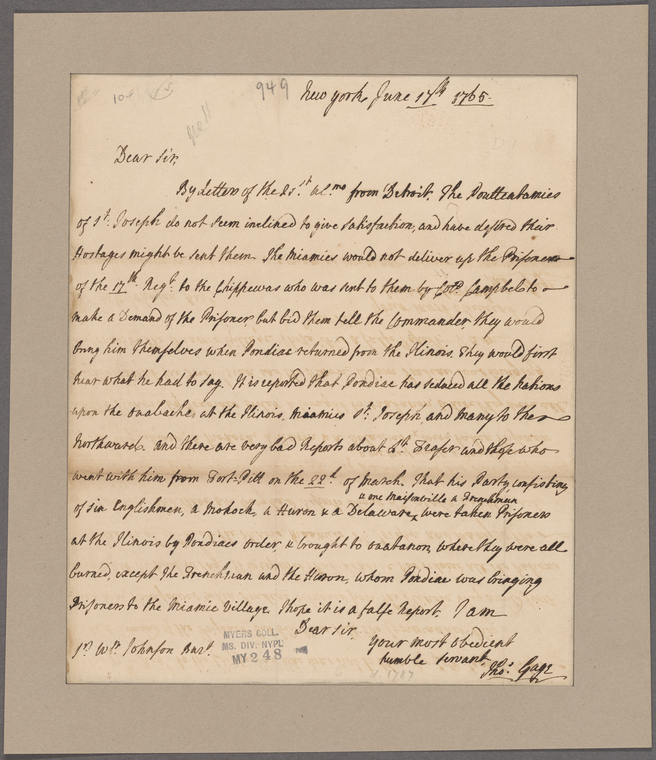 949
10-
New York June 17th 1765.
Dear Sir,
By Letters of the 21st. ulmo from Detroit, The Poutteatamies
of St. Joseph do not seem inclined to give satisfaction, and have desired their
Hostages might be sent them. The Miamies would not deliver up the Prisoner
of the 17th Regt. to the Chippewas who was sent to them by Coll. Campbel to
make a Demand of the Prisoner, but bid them tell the Commander they would
bring him themselves when Pondiac returned from the Ilinois. They would first
hear what he had to say. It is reported that Pondiac has seduced all the Nations
upon the Ouabache, at the Ilinois, Miamies St. Joseph, and many to the
Northward. and there are very bad Reports about Lt. Fraser and those who
went with him from Fort-Pitt on the 22d. of March. That his Party consisting
& one Maisonville a Frenchman
of six Englishmen, a Mohock, a Huron & a Delaware, were taken Prisoners
at the Ilinois by Pondiacs order, & brought to Ouabanon, where they were all
burned, except the Frenchman and the Huron, whom Pondiac was bringing
Prisoners to the Miamie Village. I hope it is a false Report. I am
Dear Sir,
your most obedient
humble servant,
Thos. Gage
Sr. Wm. Johnson Bart.
MYERS COLL.
MS. DIV. NYPL
MY 248